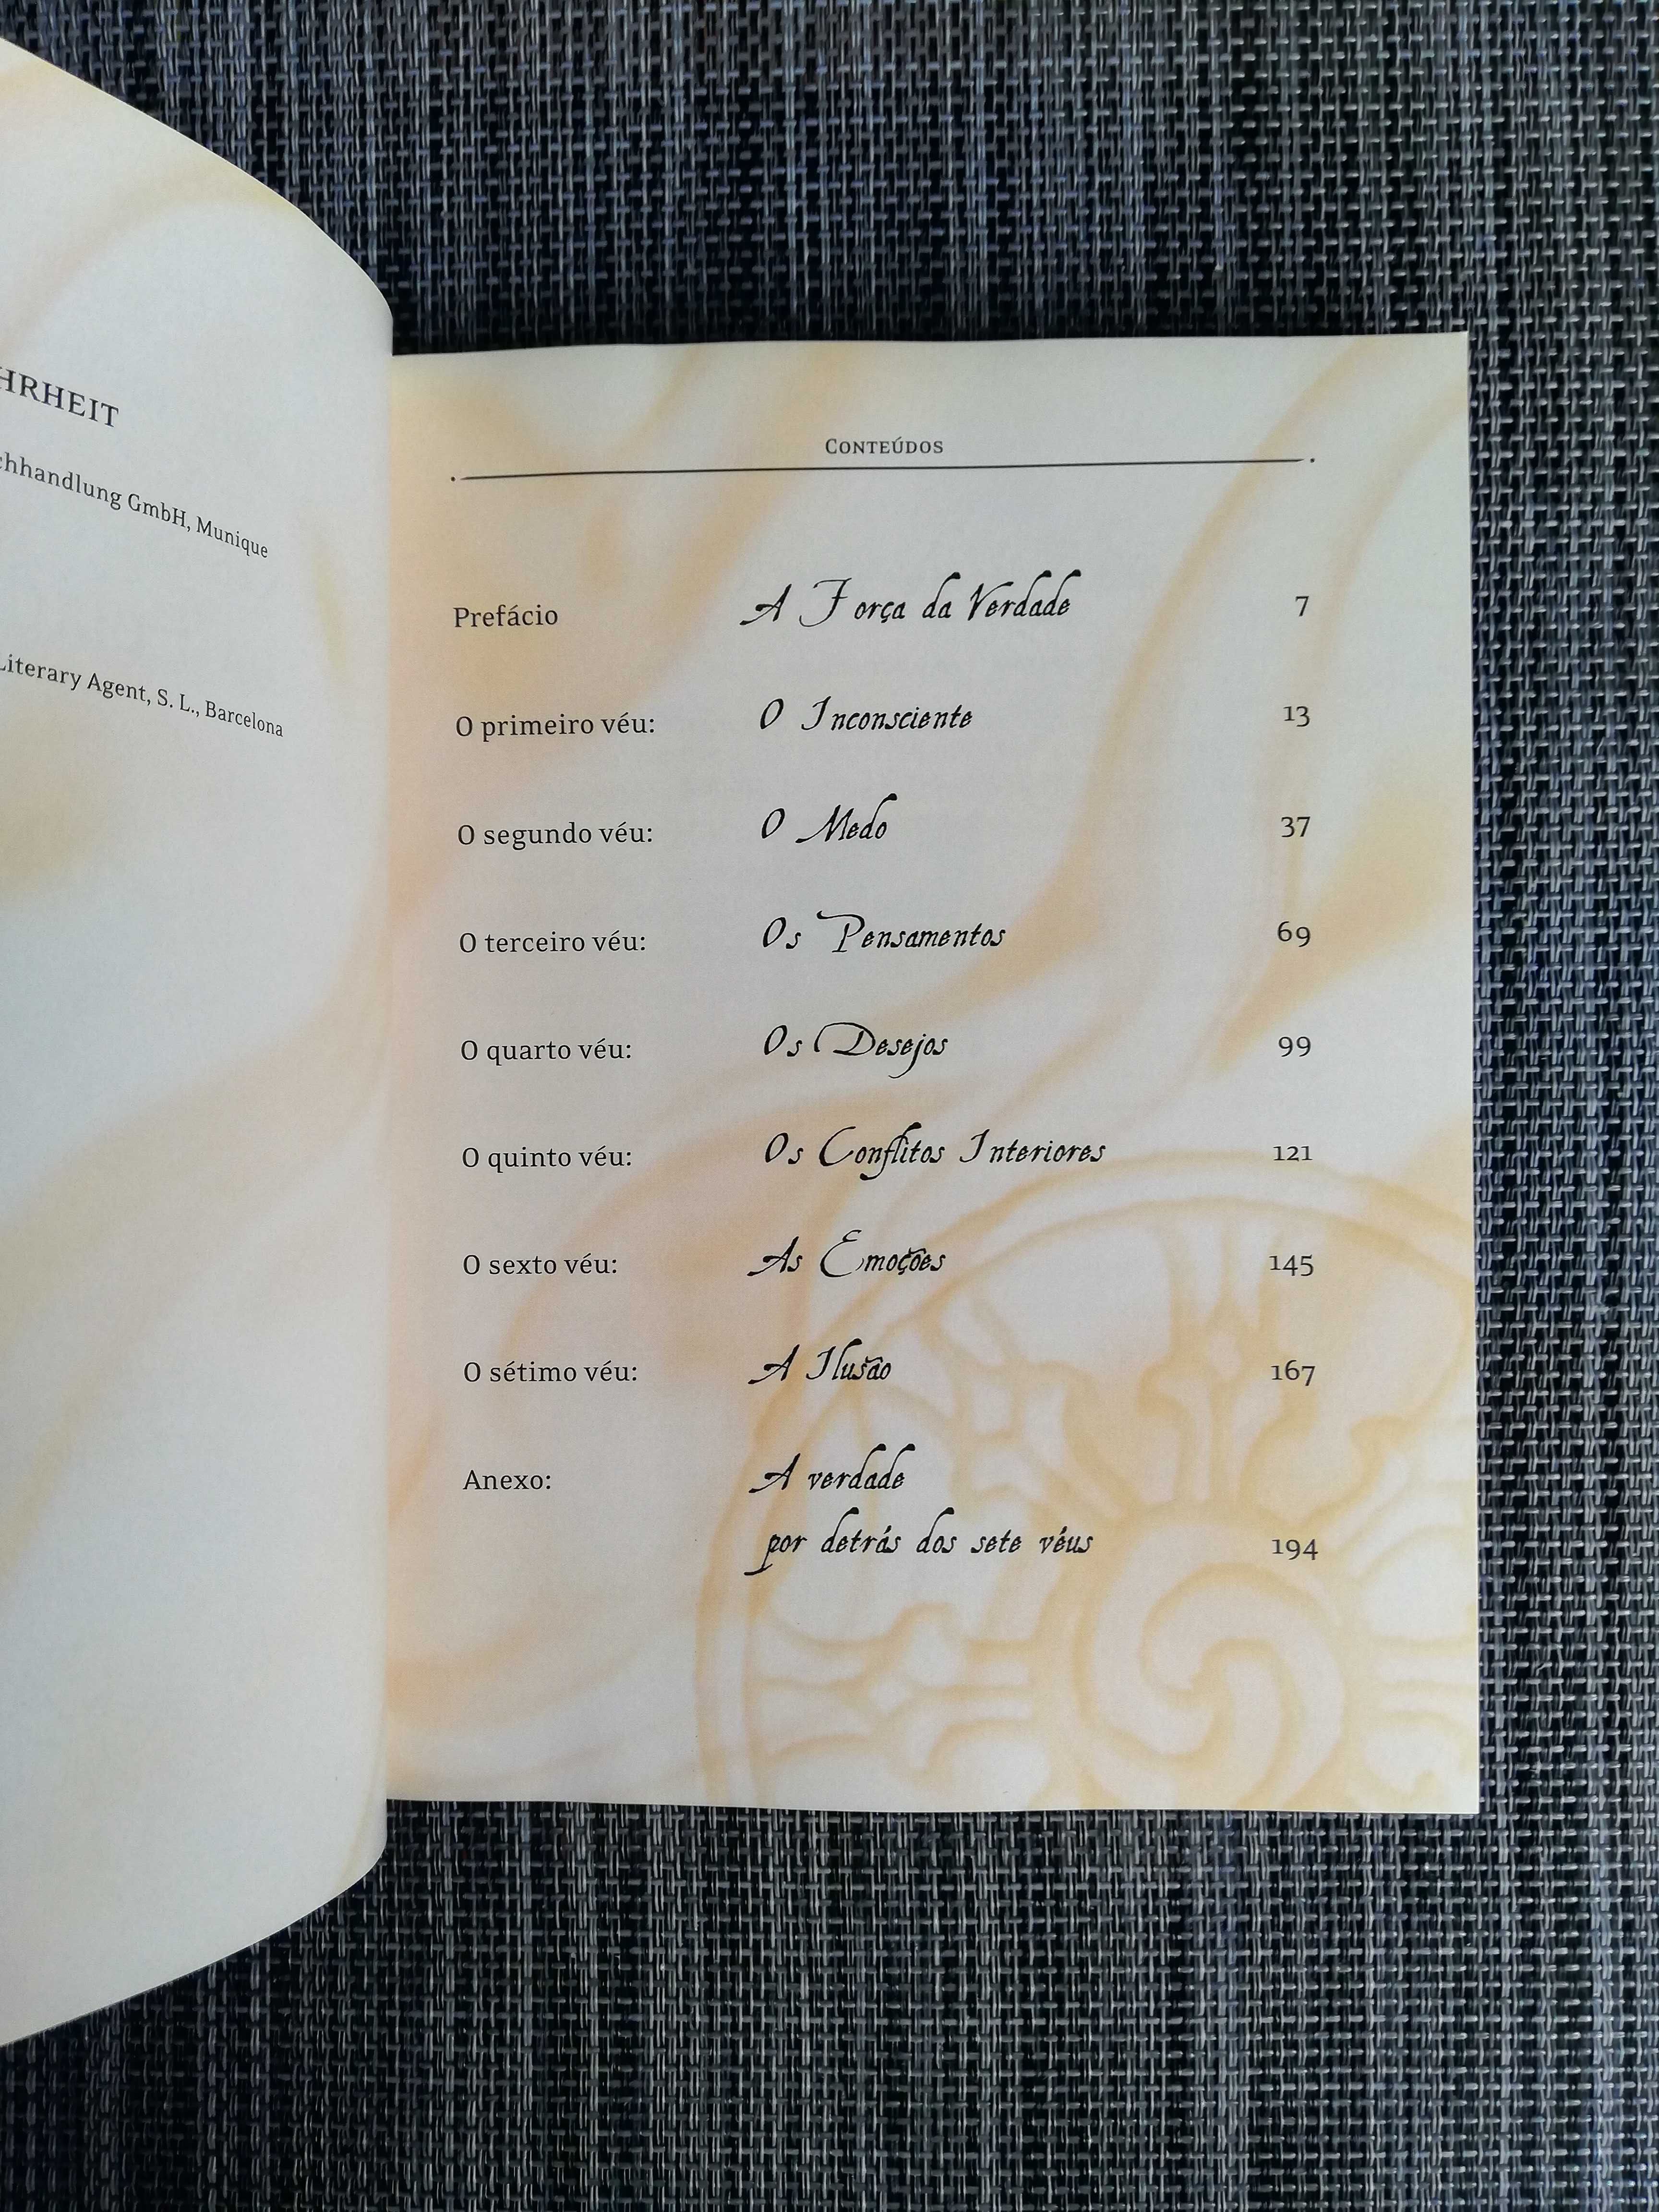 GmbH, Munique
Literary Agent, S. L., Barcelona
Conteúdos
Prefácio A Força da Verdade 7
O primeiro véu: O Inconsciente 13
O segundo véu: O Medo 37
O terceiro véu: Os Pensamentos 69
O quarto véu: Os Desejos 99
O quinto véu: Os Conflitos Interiores 121
O sexto véu: As Emoções 145
O sétimo véu: A Ilusão 167
Anexo: A verdade
por detrás dos sete véus 194